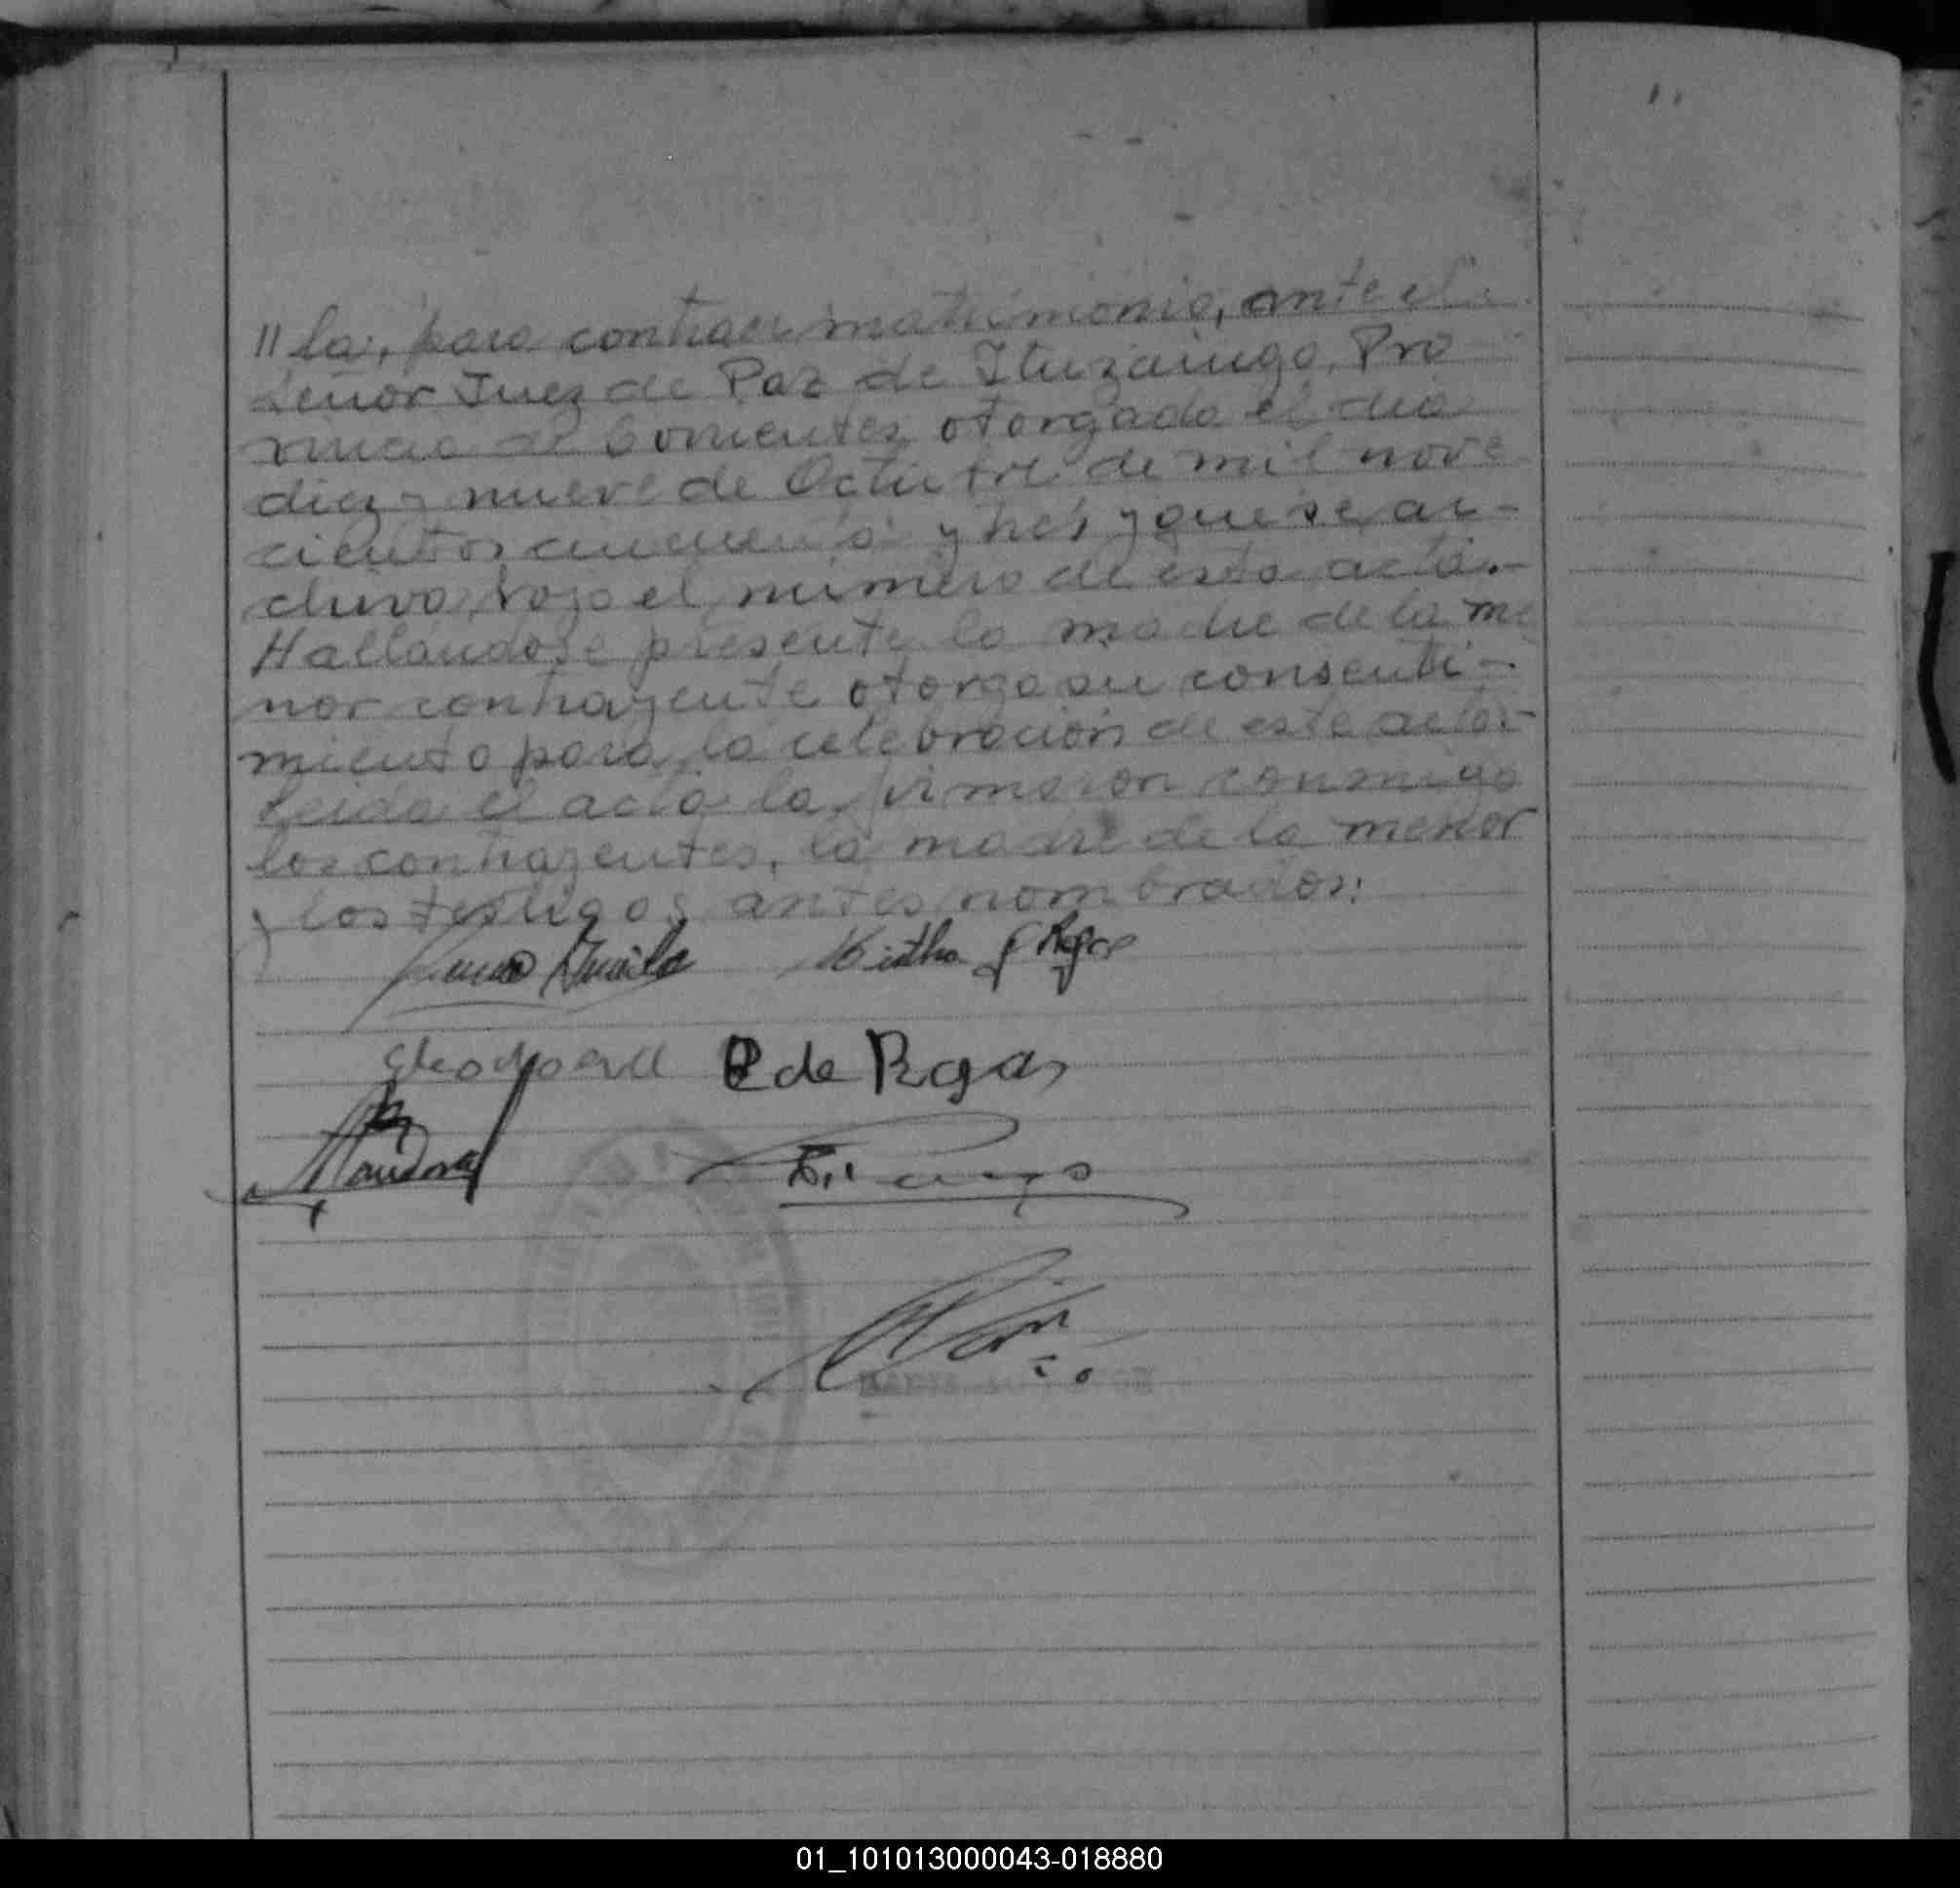 "la, para contraer matrimonio, ante el
Señor Juez de Paz de Ituzaingo, Pro
vincia de Corrientes otorgado el dia
diez y nueve de Octubre de mil nove
cientos cincuenta y tres y que se ar-
chiva, bajo el número de esta acta.-
Hallandose presente la madre de la me
nor contrayente otorga su consenti-
miento para la celebración de este acto.-
Leida el acta la firmaron conmigo
los contrayentes, la madre de la menor
y los testigos antes nombrados:
de Rojas
01_101013000043-018880